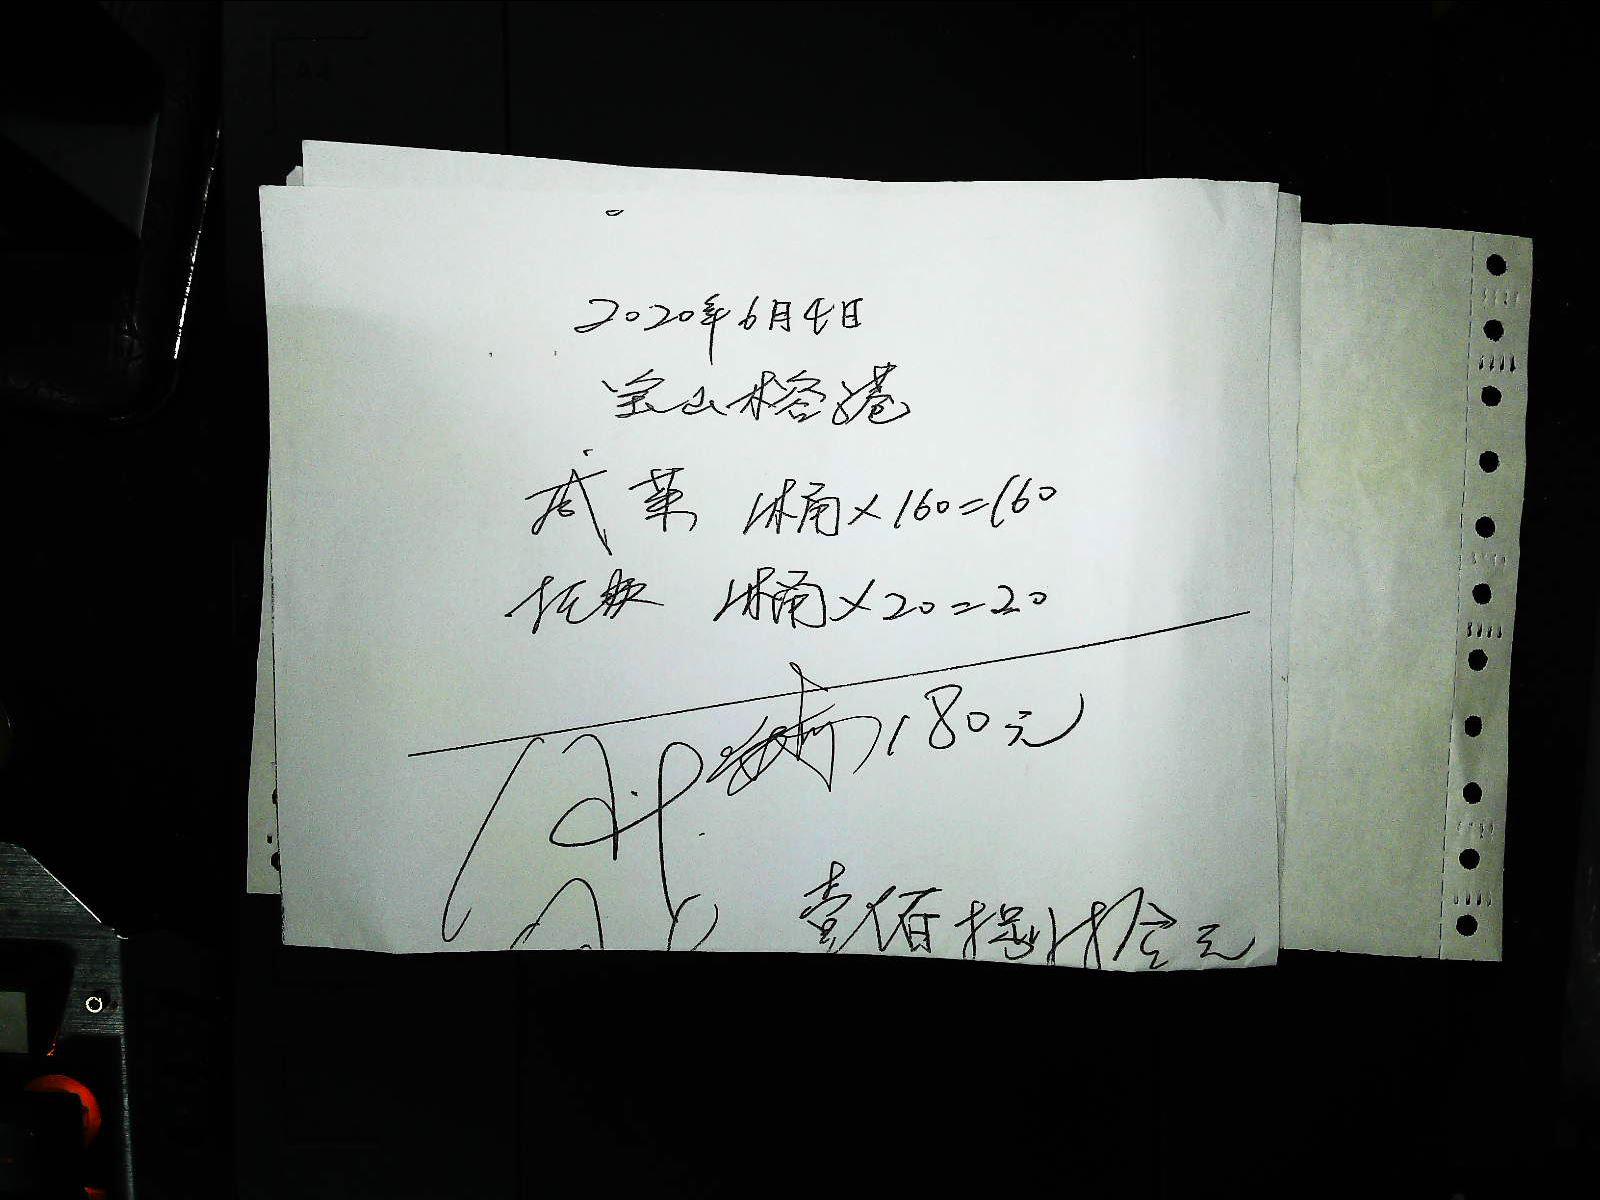 2020年6月4日
宝山榕港
咸菜 1桶×160=160
1桶×20=20
180元
壹佰捌拾元